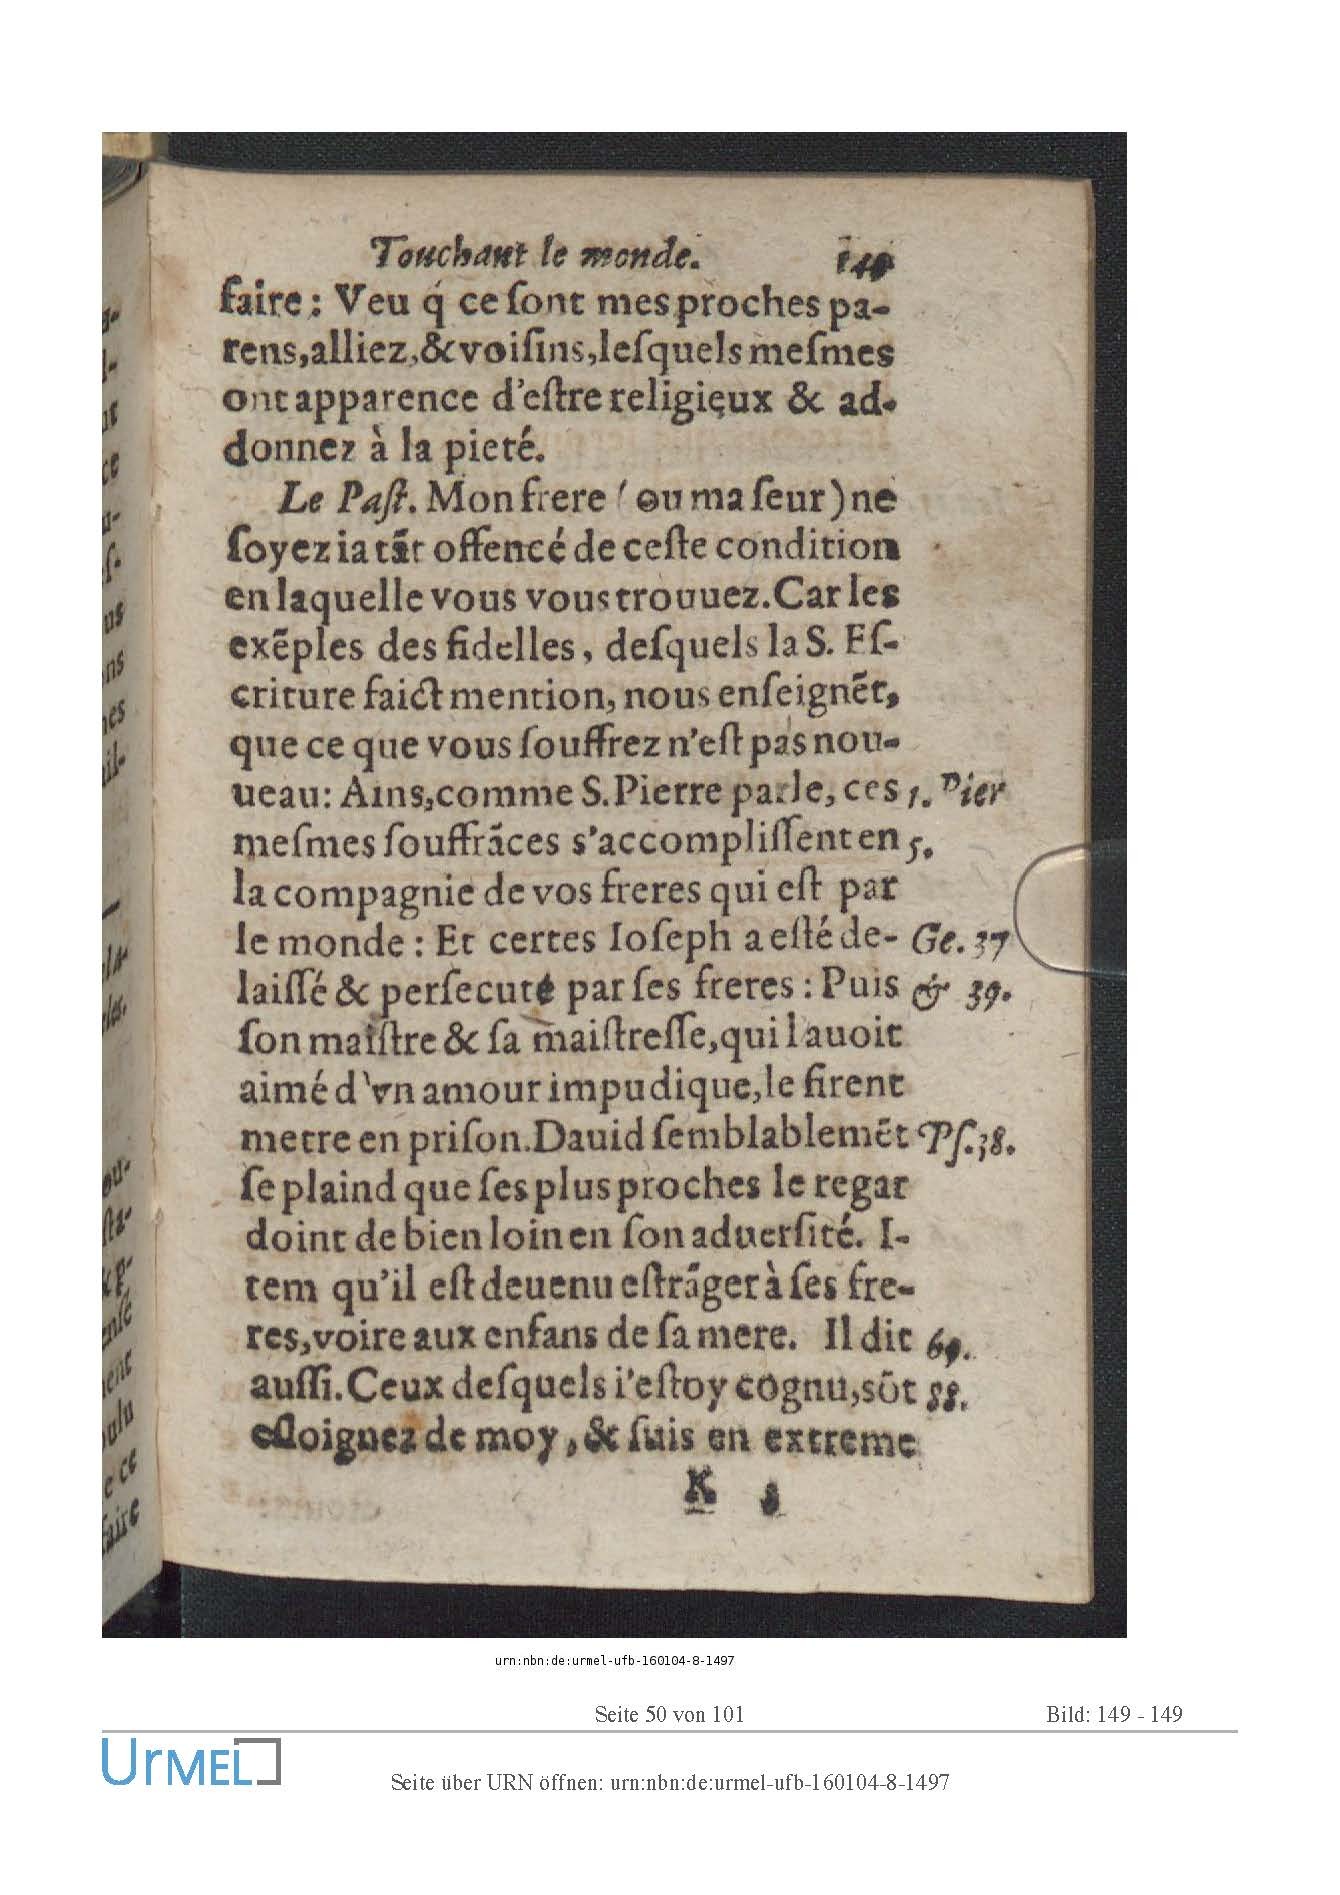 Touchant le monde.
faire : Veu q́ ce ſont mes proches pa-
rens, alliez, & voiſins, leſquels meſmes
ont apparence d'eſtre religieux & ad-
donnez à la pieté.
Le Paſt. Mon frere (ou ma ſeur) ne
ſoyez ia tãt offencé de ceſte condition
en laquelle vous vous trouuez. Car les
exẽples des fidelles, deſquels la S. Eſ-
criture faict mention, nous enſeignẽt,
que ce que vous ſouffrez n'eſt pas nou-
ueau: Ains, comme S. Pierre parle, ces 1. Pier
meſmes ſouffrãces s'accompliſſent en 5.
la compagnie de vos freres qui eſt par
le monde : Et certes Ioſeph a eſté de- Ge. 37
laiſſé & perſecuté par ſes freres : Puis & 39.
ſon maiſtre & ſa maiſtreſſe, qui l auoit
aimé d'vn amour impudique, le firent
metre en priſon. Dauid ſemblablemẽt Pſ. 38.
ſe plaind que ſes plus proches le regar
doint de bien loin en ſon aduerſité. I-
tem qu'il eſt deuenu eſtrãger à ſes fre-
res, voire aux enfans de ſa mere. Il dit 69.
auſſi. Ceux deſquels i'eſtoy cognu, sõt 88.
eſloignez de moy, & ſuis en extreme
K
urn:nbn:de:urmel-ufb-160104-8-1497
Seite 50 von 101 Bild: 149 - 149
UrMEL
Seite über URN öffnen: urn:nbn:de:urmel-ufb-160104-8-1497